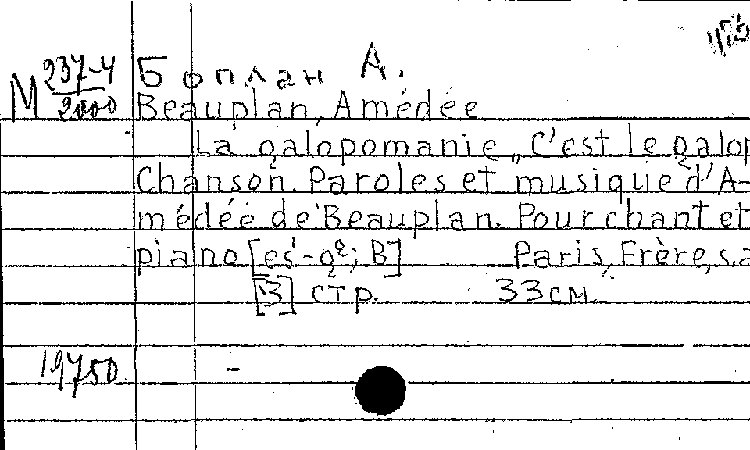 М 237-4
2000
Боплан А.
Beauplan, Amédée
La galopomanie, „C'est le galop
Chanson. Paroles et musique d'A-
médée de Beauplan. Pour chant et
piano [es¹-g²; B] Paris, Frère, s.a
[3] стр. 33 см.
19750